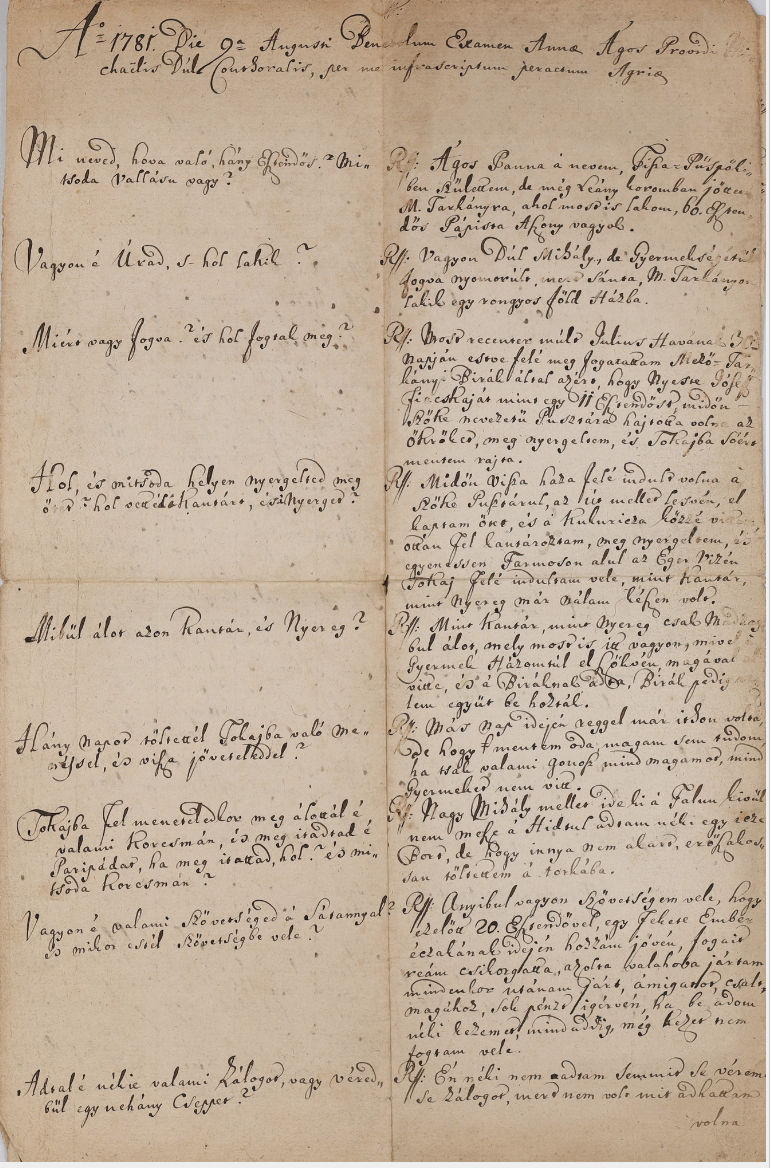 Aº 1781. Die 9ª Augusti Benevolum Examen Annæ Ágos Providi
chaëlis Dúl Conthoralis, per me infrascriptum peractum Agriæ
Mi neved, hova való, hány Esztendős? Mi-
tsoda Vallásu vagy?
Rss: Ágos Panna á nevem, Tisza-Püspöki-
ben születtem, de még Leány koromban jöttem
M. Tarkányra, ahol most is lakom, 60. Eszten-
dős Pápista Aszony vagyok.
Vagyon é Úrad, s- hol lakik?
Rss: Vagyon Dúl Mihály, de Gyermekségétűl
fogva nyomorúlt, mert Sánta, M. Tarkányon
lakik egy rongyos föld Házba.
Miért vagy Fogva? és hol fogtak meg?
Rss: Most recenter múlt Julius Havának
napján estve felé meg fogattattam Mező-Tar-
kányi Birák által azért, hogy Nyeste Jósef
fiátskáját mint egy 11 Esztendőst, midőn
Szőke nevezetű Pusztára hajtotta volna az
ökröket, meg nyergeltem, és Tokajba Sóért
mentem rajta.
Hol, és mitsoda helyen nyergelted meg
őtet? hol vetted á Kantárt, és á Nyerget?
Rss: Midőn Visza haza felé indult volna á
Szőke Pusztárul, az út mellett lesvén, el
kaptam őtet, és á Kukuricza közzé vittem
ottan fel kantároztam, meg nyergeltem, és
egyenessen Farmoson alul az Eger Vizén
Tokaj felé indultam vele, mint Kantár,
mint Nyereg már nálam készen volt.
Mibül álot azon Kantár, és Nyereg?
Rss: Mint Kantár, mint Nyereg csak
bul álot, mely most is itt vagyon, mivel
Gyermek Házomtúl el szökvén, magával
vitte, és á Biráknak adta, Birák pedig
lem együt be hozták.
Hány napot töltettél Tokajba való me-
néssel, és visza jöveteleddel?
Rss: Más nap idején reggel már itthon voltam,
de hogy mentem oda, magam sem tudom,
ha tsak valami gonosz mind magamot, mind
Gyermeket nem vitt.
Tokajba fel meneteledkor meg álottál é
valami Korcsmán, és meg itattad é
Paripádat, ha meg itattad, hol? és mi-
tsoda Korcsmán?
Rss: Nagy Mihály mellet ide ki á Falun kivül
nem mesze á Hidtul adtam néki egy icze
Bort, de hogy innya nem akart, erőszakos-
san töltöttem á torkába.
Vagyon é valami Szövetséged á Satannyal?
és mikor estél Szövetségbe vele?
Rss: Anyibul vagyon Szövetségem vele, hogy
ezelőtt 20. Esztendővel, egy fekete Ember
éczakának idején hozzám jöven, fogait
reám csikorgatta, azolta valahova jártam
mindenkor utánam járt, ámigatot, csalt
magához, sok pénzt igérvén, ha be adom
néki kezemet, mind addig, még kezet nem
fogtam vele.
Adtal é nékie valami Zálogot, vagy véred-
bül egy nehány Cseppet?
Rss: Én néki nem adtam semmit se vérem
se Zálogot, mert nem volt mit adhattam
volna